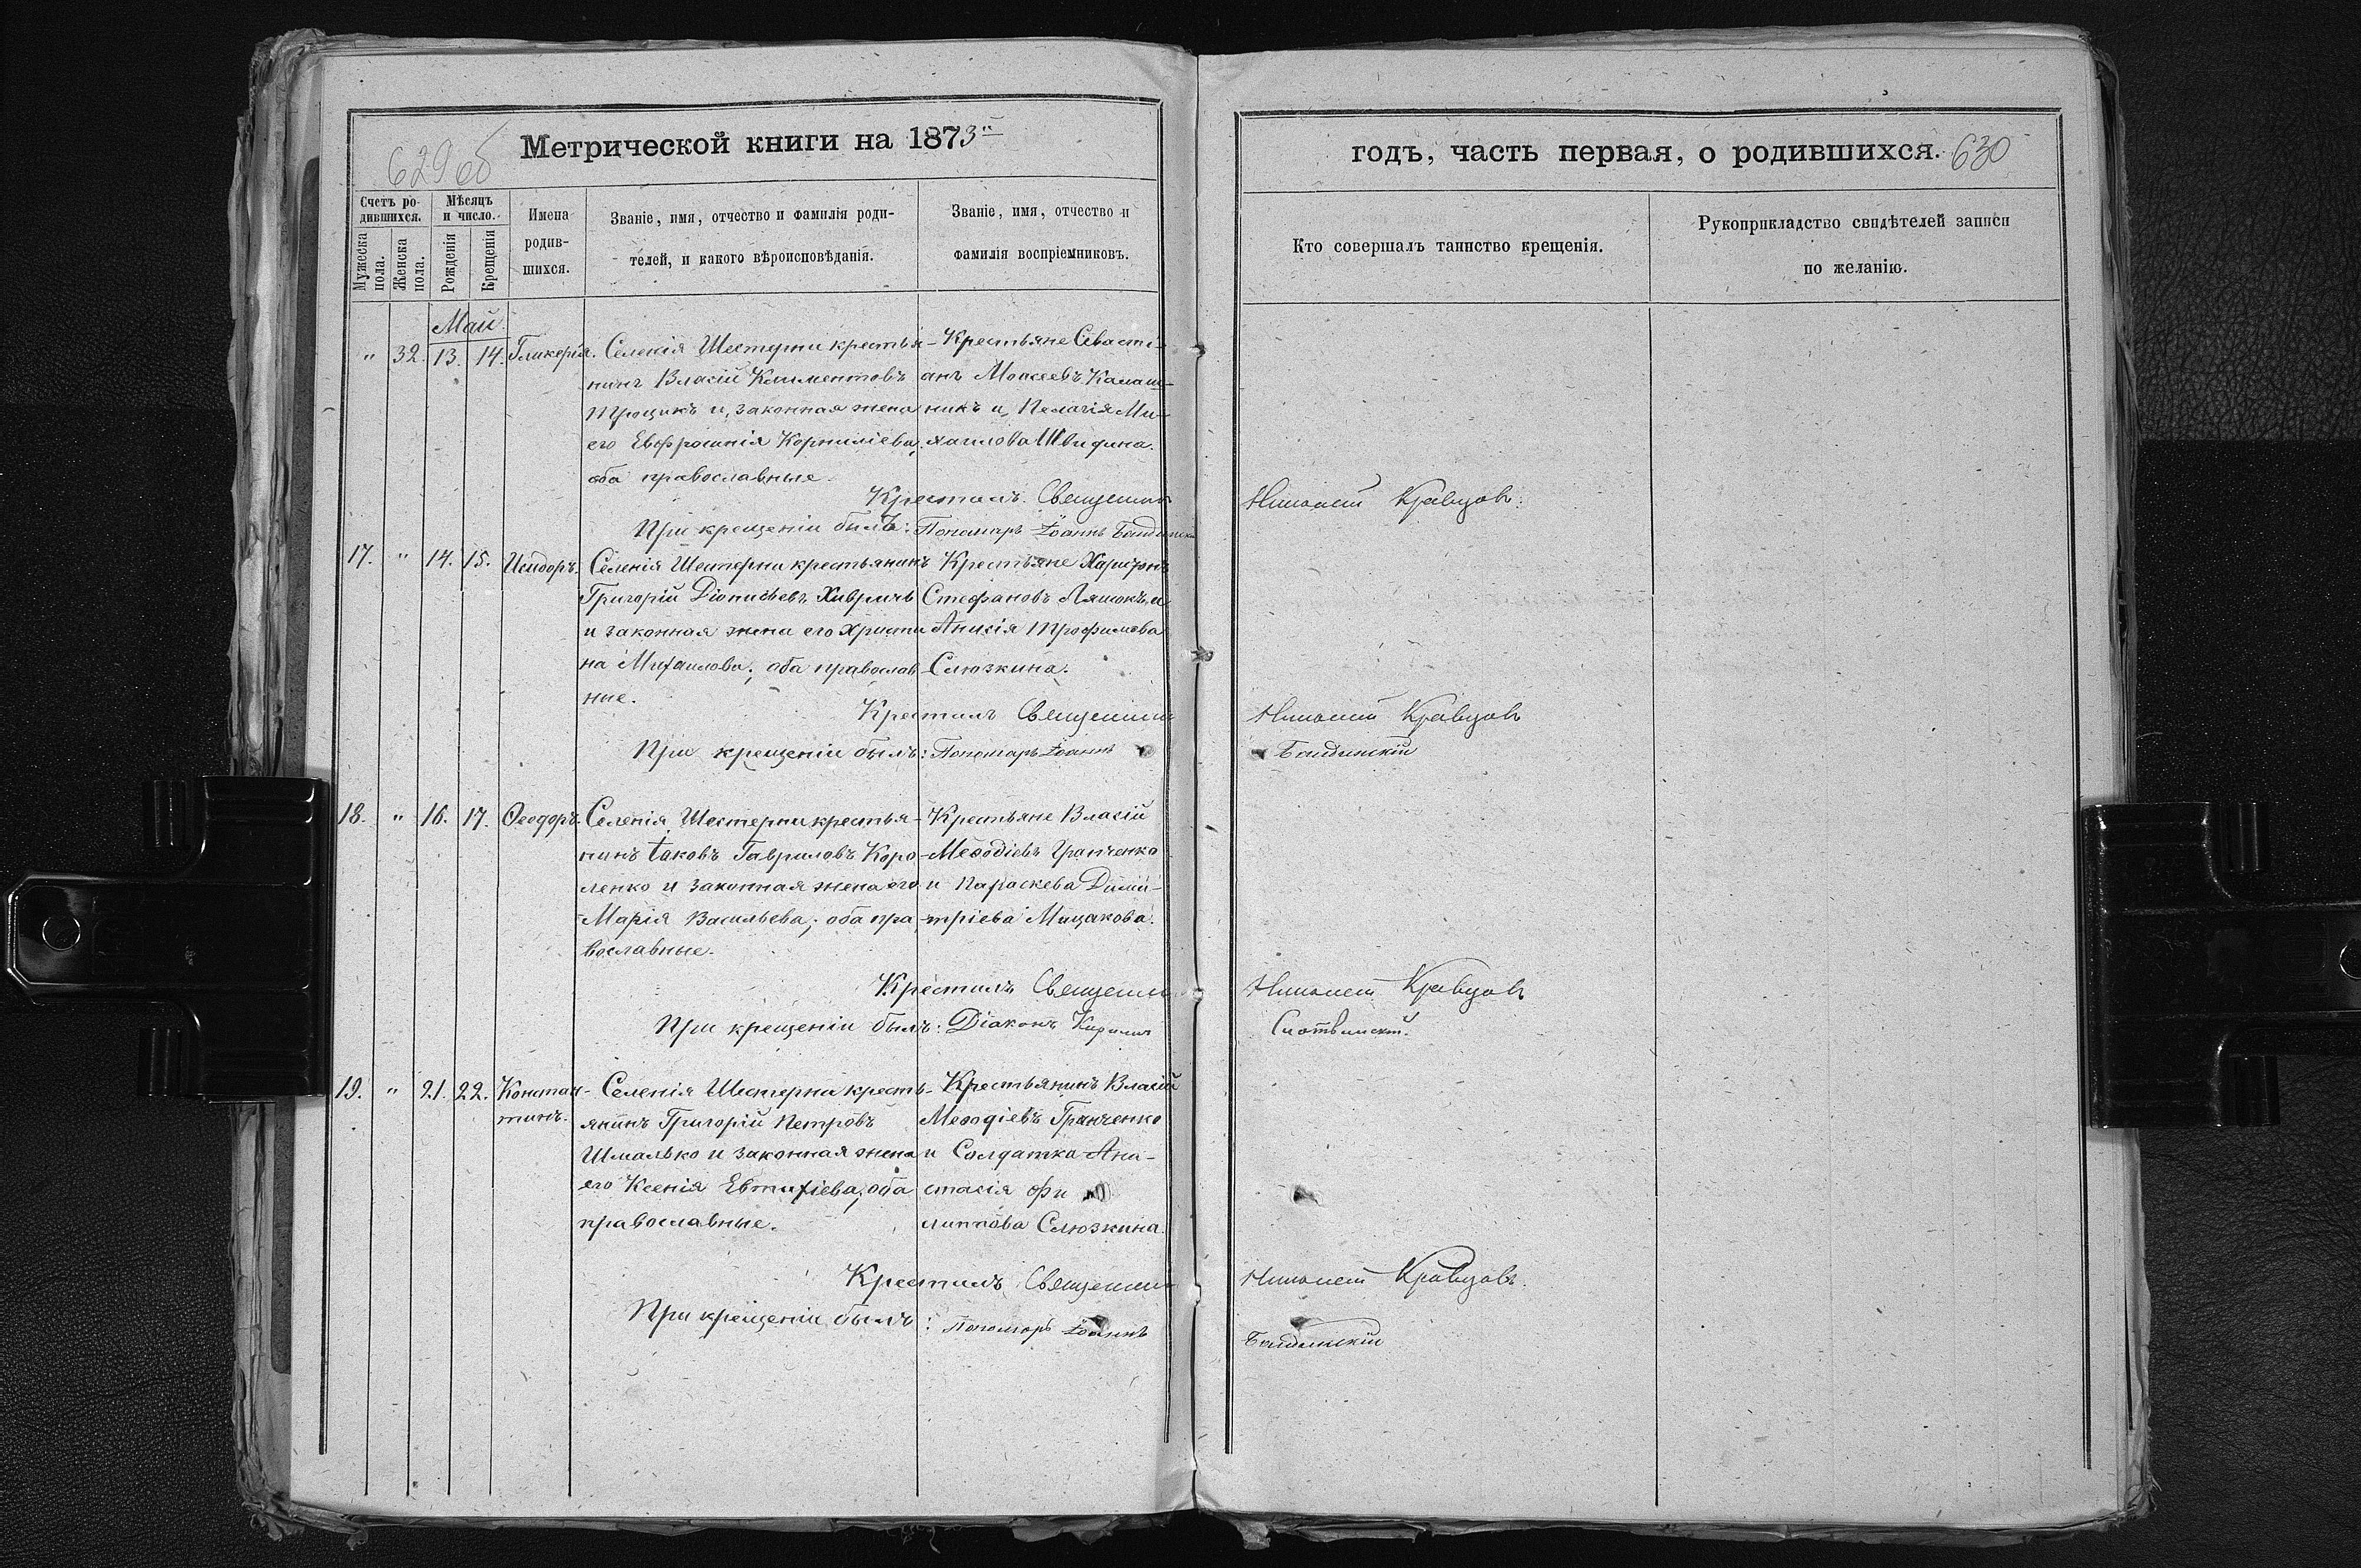 Метрической книги на 1873й
629об
Счетъ ро-
дившихся.
Мужеска пола.
Женска пола.
Мѣсяцъ
и число.
Рожденія
Крещенія
Имена
родив-
шихся.
Званіе, имя, отчество и фамилія роди-
телей, и какого вѣроисповѣданія.
Званіе, имя, отчество и
фамилія воспріемниковъ.
годъ, часть первая, о родившихся. 630
Кто совершалъ таинство крещенія.
Рукоприкладство свидѣтелей записи
по желанію.
Май
" 32. 13. 14. Гликерія.
Селенія Шестерни крестья-
нинъ Власій Климентовъ
и, законная жена
его Евфросинія Корниліева,
оба православные.
Крестьяне Севасті-
анъ Моисеевъ Калаш-
никъ и, Пелагія Ми-
хаилова
Крестилъ Священник Кравцовъ.
При крещеніи былъ: Пономарь Іоаннъ
17. " 14. 15. Исидоръ.
Селенія Шестерни крестьянинъ
Григорій Діонисьевъ Хавричъ
и законная жена его Христи
на Михаилова; оба православ
ние.
Крестьяне Харитонъ
Стефановъ Ляшокъ, и
Анисія Трофимова
Слюзкина.
Крестилъ Священник Кравцовъ
При крещеніи былъ: Пономарь Іоаннъ
18. " 16. 17. Ѳеодоръ.
Селенія Шестерни крестья-
нинъ Іаковъ Гавриловъ Коро-
ленко и законная жена его
Марія Васильева; оба пра-
вославные.
Крестьяне Власій
Меѳодіевъ Гранченко
и Параскева Дими-
тріева Мацакова.
Крестилъ Священник Кравцовъ
При крещеніи былъ: Діаконъ Кирилъ
19. " 21. 22. Констан-
тинъ.
Селенія Шестерни кресть-
янинъ Григорій Петровъ
Шмалько и законная жена
его Ксенія Евтихіева, оба
православные.
Крестьянинъ Власій
Меѳодіевъ Гранченко
и Солдатка Ана-
стасія Фи
липпова Слюзкина.
Крестилъ Священник Кравцовъ.
При крещеніи былъ: Пономарь Іоаннъ